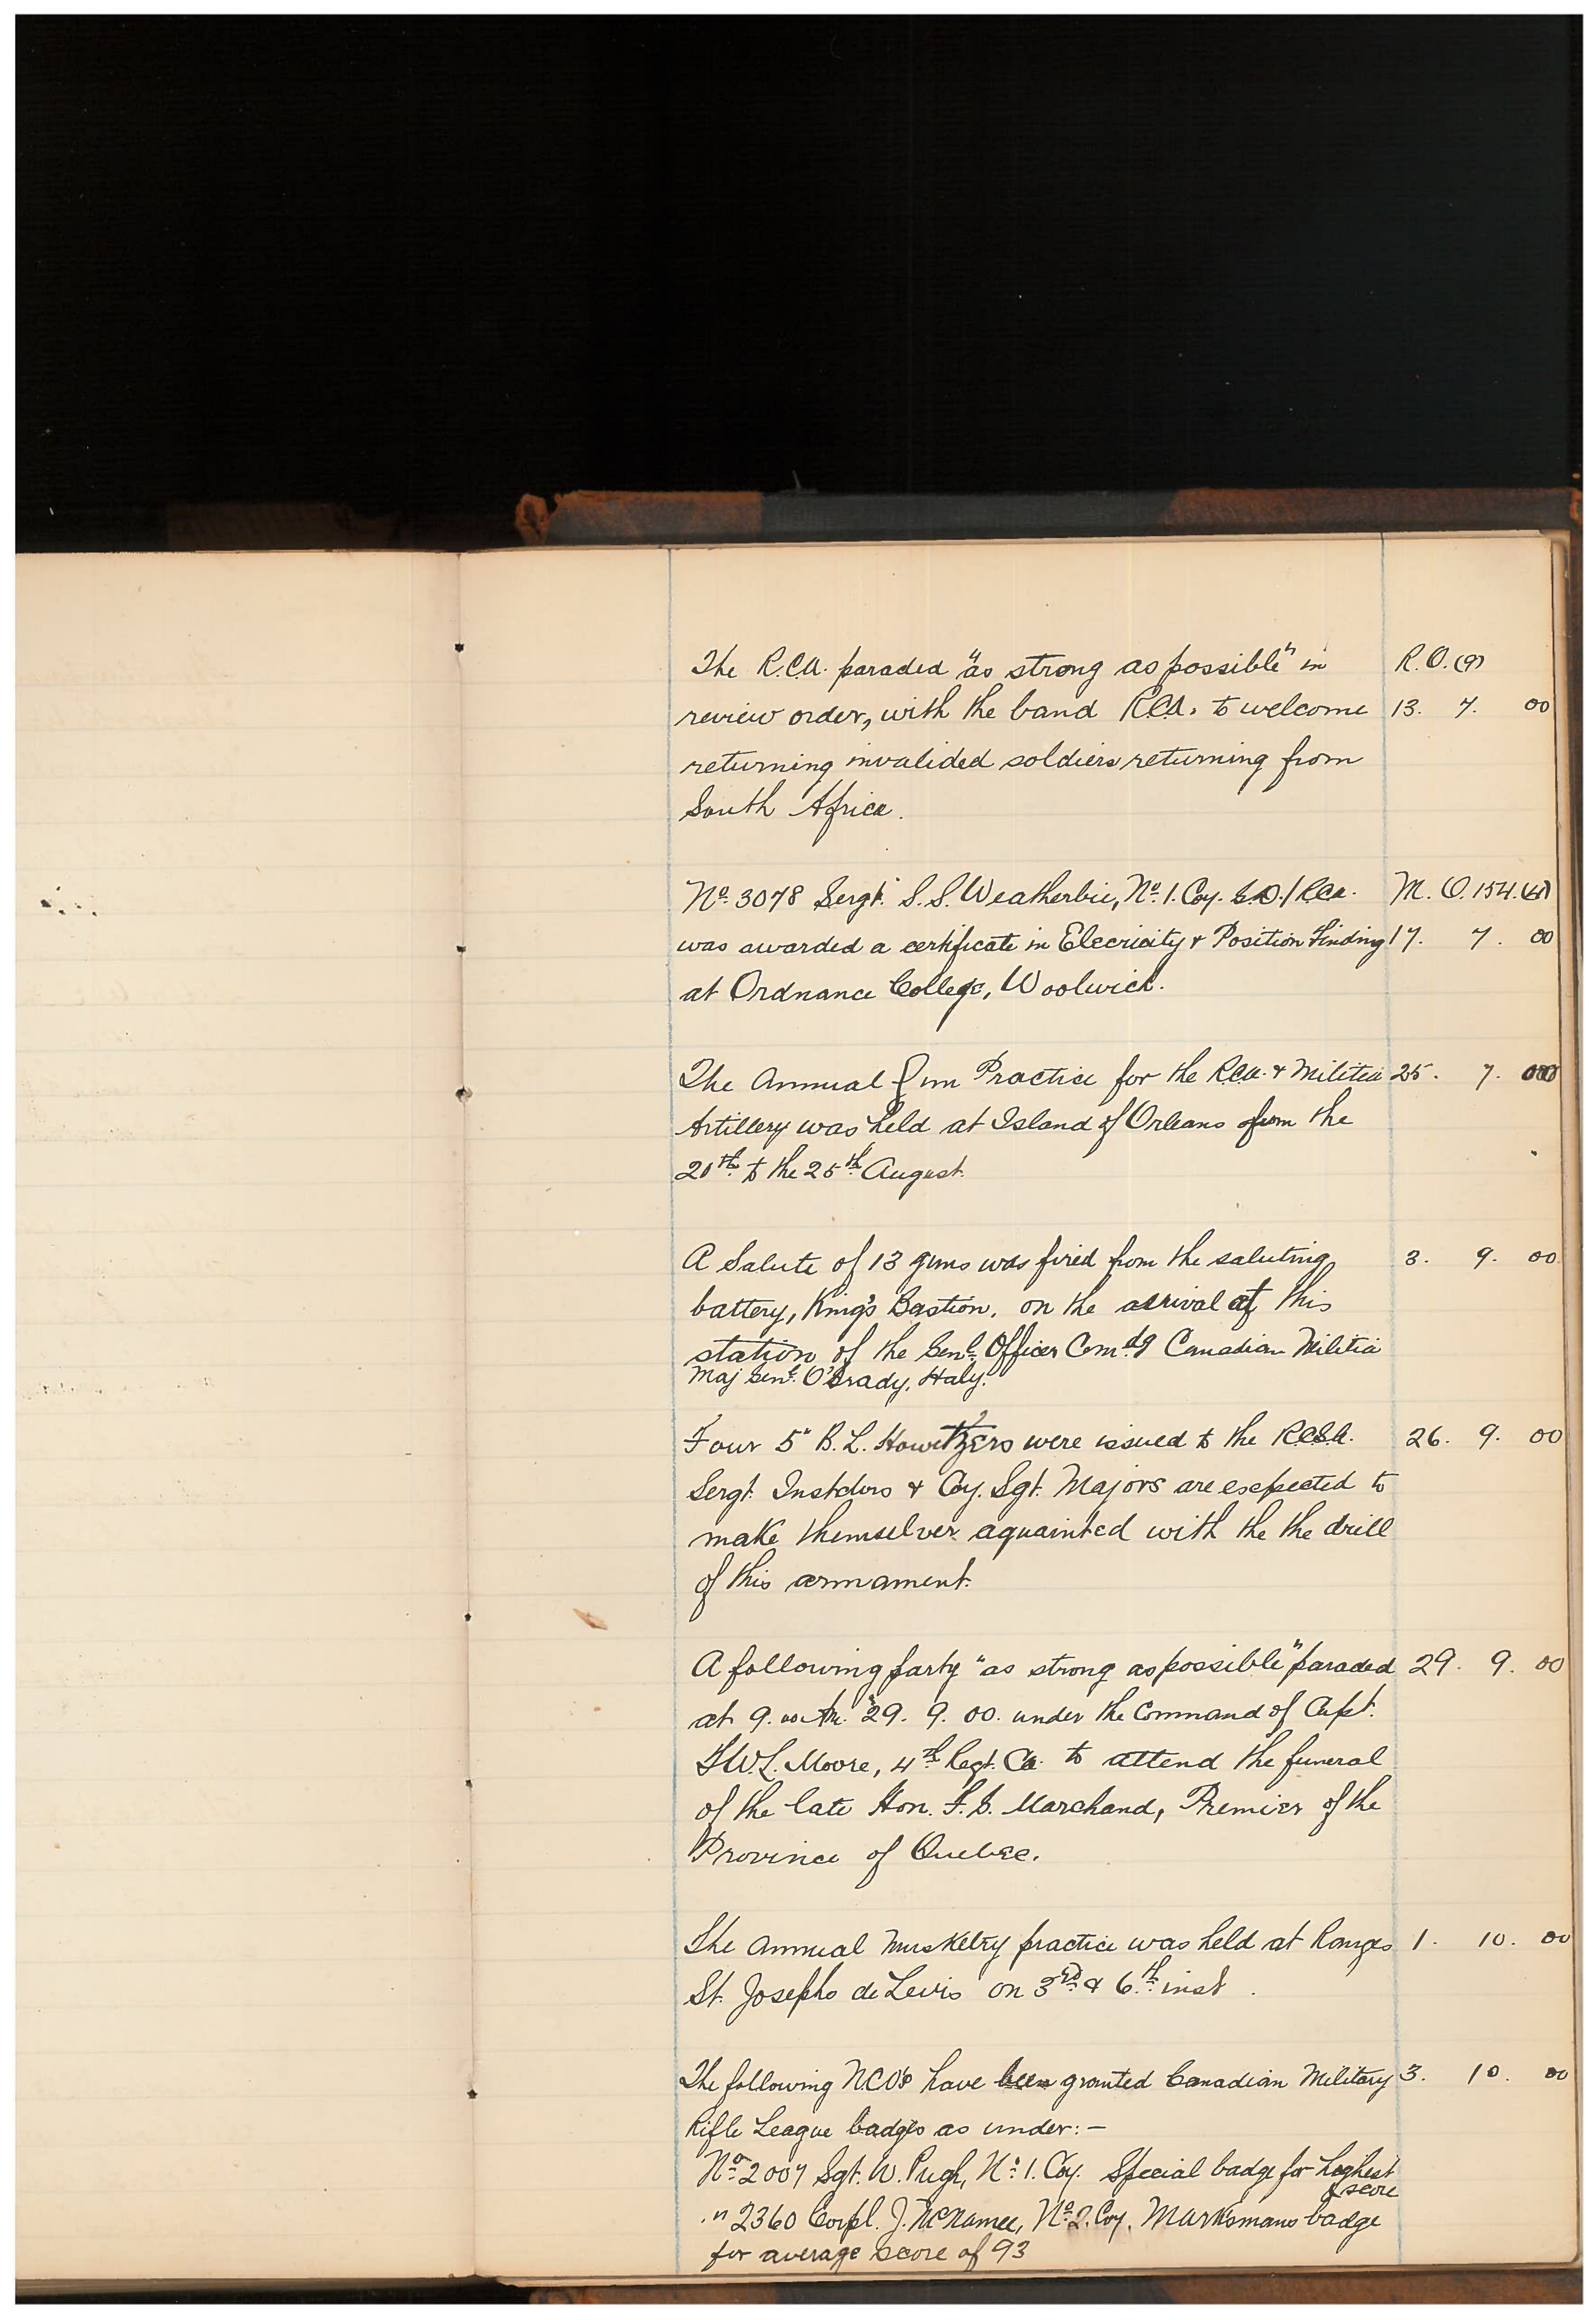 The R.C.A. paraded "as strong as possible" in R. O. (9)
review order, with the band R.C.A. to welcome 13. 7. 00
returning invalided soldiers returning from
South Africa.
No. 3078 Sergt. S. S. Weatherbie, No. 1. Coy. R.C.A. M. O. 154.
was awarded a certificate in Elecricity & Position Finding 17. 7. 00
at Ordnance College, Woolwich.
The Annual Gun Practice for the R.C.A. & Militia 25. 7. 00
Artillery was held at Island of Orleans from the
20th to the 25th August.
A Salute of 13 guns was fired from the saluting 3. 9. 00
battery, King's Bastion, on the arrival at this
station of the Genl. Officer Comdg Canadian Militia
Maj Genl. O'Grady, Haly.
Four 5" B. L. Howitzers were issued to the R.C.G.A. 26. 9. 00
Sergt. Instctors & Coy. Sgt. Majors are expected to
make themselves aquainted with the the drill
of this armament.
A following party "as strong as possible" paraded 29. 9. 00
at 9. 29. 9. 00. under the Command of Capt.
Moore, 4th Regt. C.A. to attend the funeral
of the late Hon. F. G. Marchand, Premier of the
Province of Quebec.
The Annual Musketry practice was held at Ranges 1. 10. 00
St. Josephs de Levis on 3rd & 6th inst.
The following NCO's have been granted Canadian Military 3. 10. 00
Rifle League badges as under:-
No. 2007 Sgt. W. Pugh, No. 1. Coy. Special badge for highest
score
" 2360 Corpl. J. McNamee, No. 2. Coy. Marksmans badge
for average score of 93